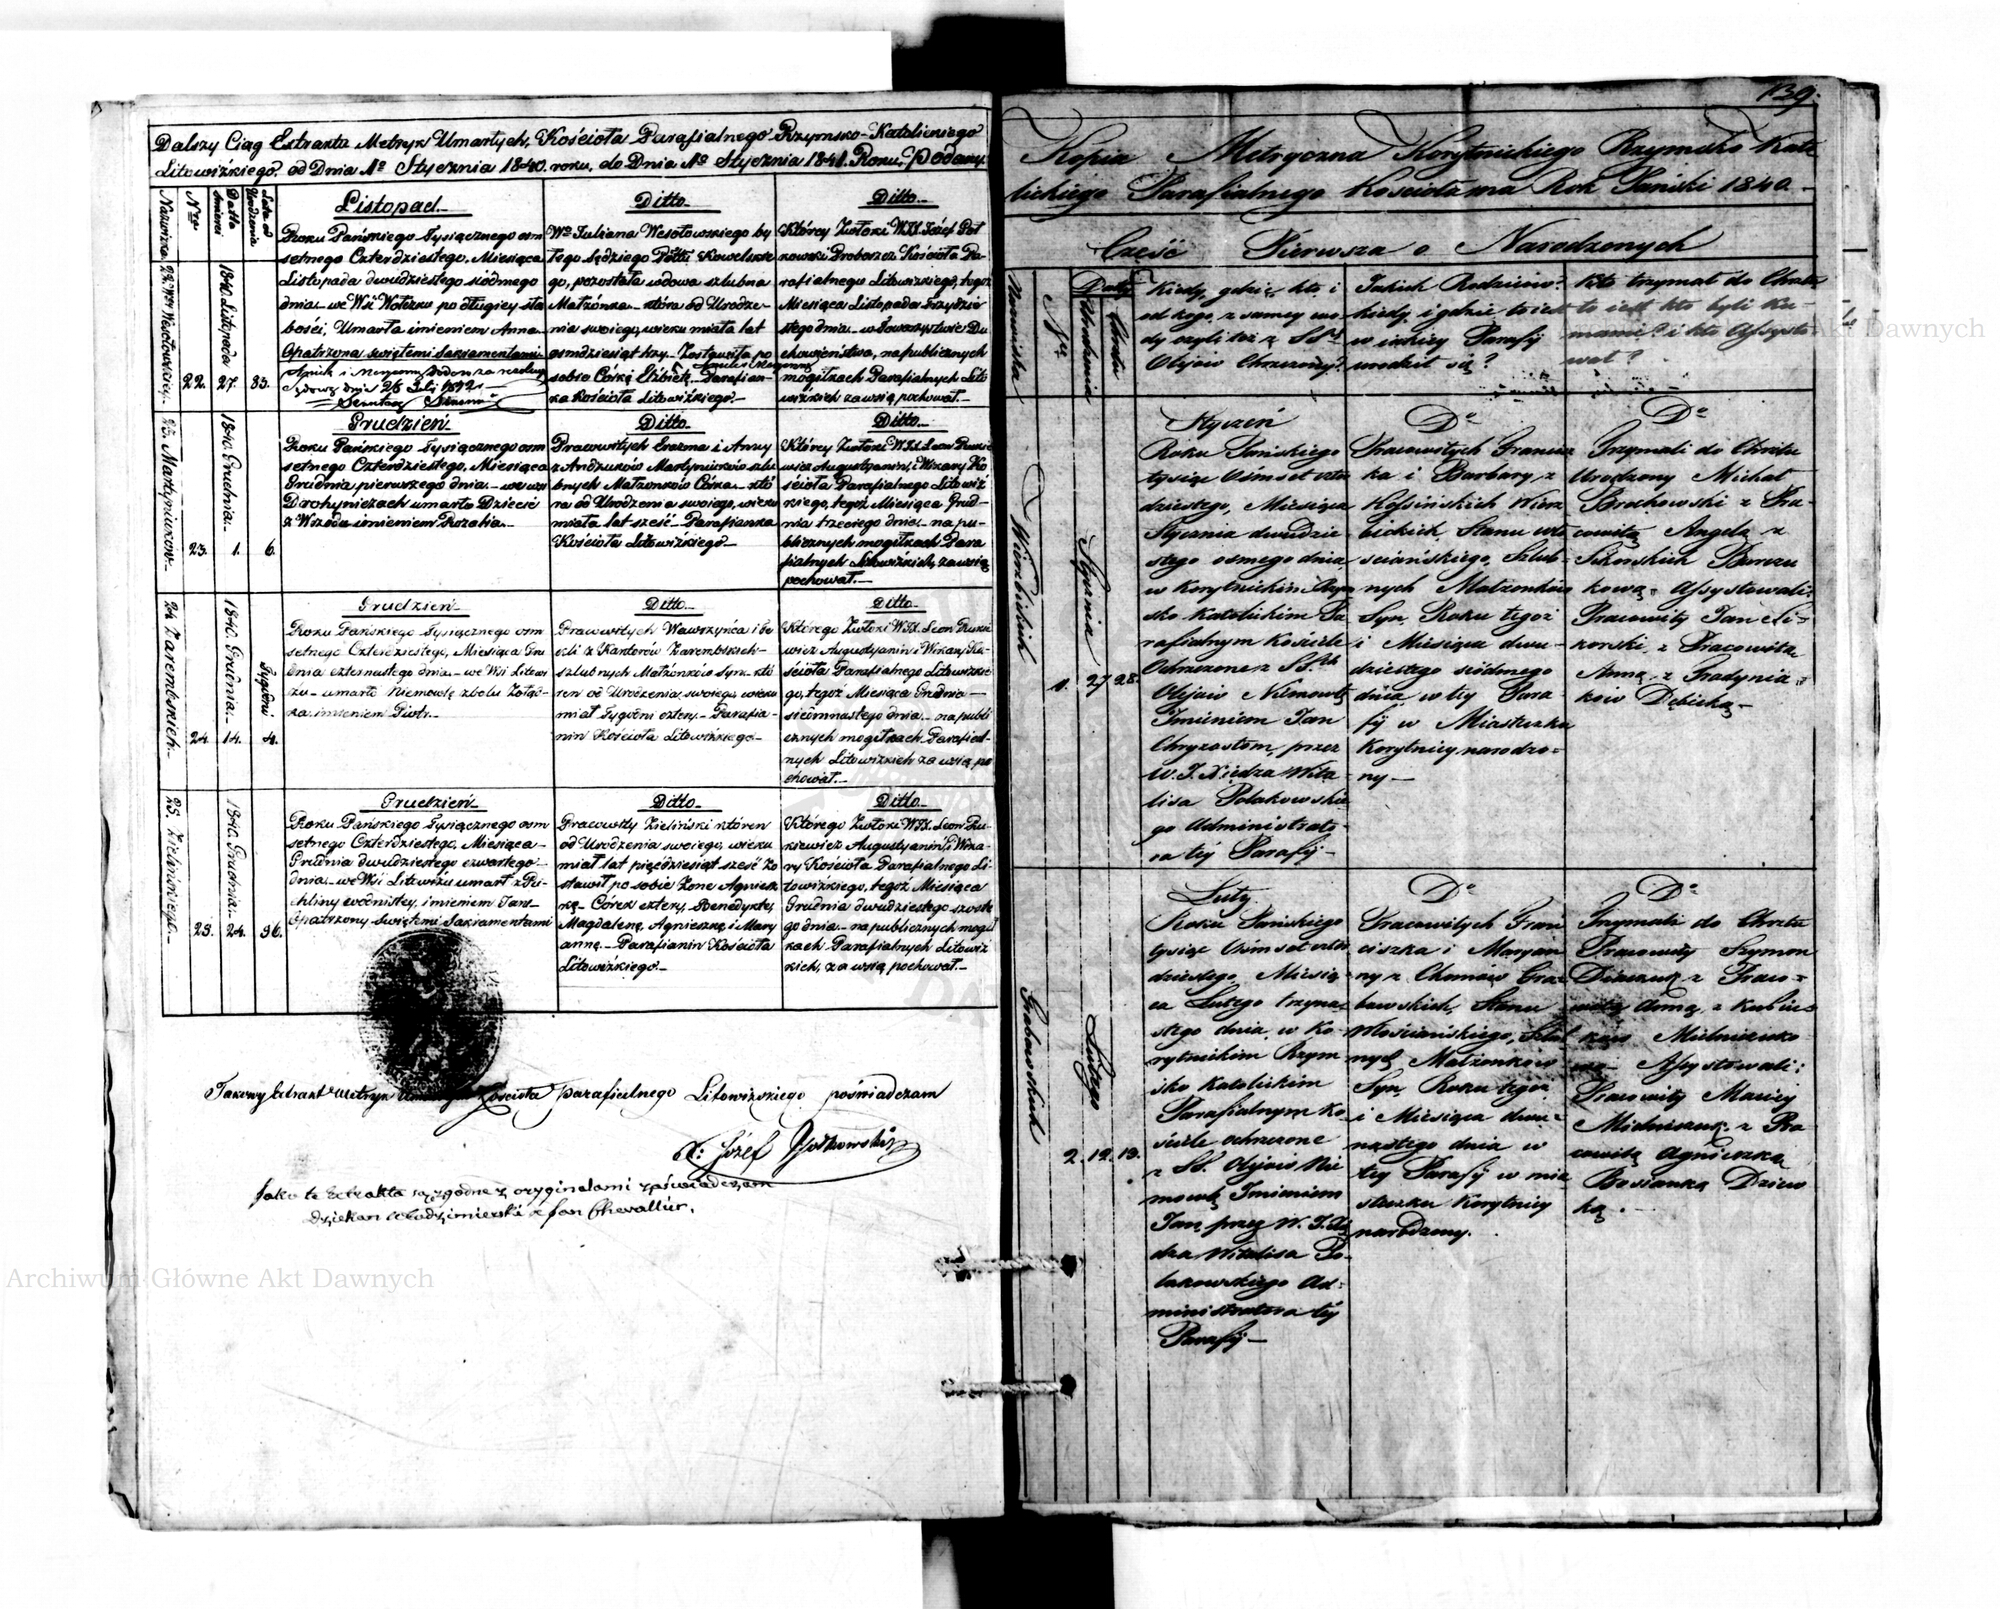 Dalszy Ciąg Extraktu Metryk Umarłych, Kościoła Parafialnego Rzymsko-Katolickiego
Litowizkiego od Dnia 1go Stycznia 1840. roku, do Dnia 1go Stycznia 1841. Roku, podany.
Nazwiska
Nro
Datta śmierci
Lata od Urodzenia
Listopad
Ditto
Ditto
22. Wesołowskiey
22.
1840. Listopada
27.
83.
Roku Pańskiego Tysiącznego osm
setnego Czterdziestego, Miesiąca
Listopada dwudziestego siódmego
dnia we Wsi Wołczku po długiey sła
bości, Umarła imieniem Anna
Opatrzona świętemi Sakramentami
Juliana Wesołowskiego by
łego Sędziego Kowelskie
go, pozostała wdowa szlubna
Małżonka która od Urodze
nia swoiego, wieku miała lat
osmdziesiąt trzy. Zostawiła po
sobie Córkę Elżbietę Parafian
ka Kościoła Litowizkiego.
Którey Zwłoki WJX. Józef Poł
kowski Proboszcz Kościoła Pa
rafialnego Litowizkiego, tegoż
Miesiąca Listopada trzydzie
stego dnia w Towarzystwie Du
chowieństwa, na publicznych
mogiłkach Parafialnych Lito
wizkich za wsią pochował.
23. Martyniuków
23.
1840. Grudnia
1.
6.
Grudzień
Roku Pańskiego Tysiącznego osm
setnego Czterdziestego, Miesiąca
Grudnia pierwszego dnia we wsi
Drohyniczach umarło Dziecie
z Wrzodu imieniem Rozalia.
Ditto
Pracowitych Erazma i Anny
z Andzuków Martyniuków szlu
bnych Małżonków Córka któ
ra od Urodzenia swoiego, wieku
miała lat sześć Parafianka
Kościoła Litowizkiego.
Ditto
Którey Zwłoki WJX. Leon Rukie
wicz Augustyanin, i Wikary Ko
ścioła Parafialnego Litowiz
kiego, tegoż Miesiąca Grud
nia trzeciego dnia na pu
blicznych mogiłkach Para
fialnych Litowizkich, za wsią
pochował.
24. Zarembskich
24.
1840. Grudnia
14.
Tygodni
4.
Grudzień
Roku Pańskiego Tysiącznego osm
setnego Czterdziestego, Miesiąca Gru
dnia czternastego dnia we Wsi Litowi
żu umarło Niemowlę z bolu żołąd
ka imieniem Piotr.
Ditto
Pracowitych Wawrzyńca i
z Kantorów Zarembskich
szlubnych Małżonków Syn któ
ren od Urodzenia swoiego, wieku
miał Tygodni cztery. Parafia
nin Kościoła Litowizkiego.
Ditto
Którego Zwłoki WJX. Leon Rukie
wicz Augustyanin i Wikary Ko
ścioła Parafialnego Litowizkie
go, tegoż Miesiąca Grudnia
siedmnastego dnia na publi
cznych mogiłkach Parafial
nych Litowizkich za wsią po
chował.
25. Zielińskiego
25.
1840. Grudnia
24.
56.
Grudzień
Roku Pańskiego Tysiącznego osm
setnego Czterdziestego, Miesiąca
Grudnia dwudziestego czwartego
dnia we Wsi Litowiżu umarł z Pu
chliny wodnistey, imieniem Jan
Opatrzony świętemi Sakramentami
Ditto
Pracowity Zieliński któren
od Urodzenia swoiego, wieku
miał lat pięćdziesiąt sześć Zo
stawił po sobie Żone Agniesz
kę Córek cztery, Benedyktę,
Magdalenę, Agnieszkę i Mary
annę. Parafianin Kościoła
Litowizkiego.
Ditto
Którego Zwłoki WJX. Leon Ru
kiewicz Augustyanin, i Wika
ry Kościoła Parafialnego Li
towizkiego, tegoż Miesiąca
Grudnia dwudziestego szoste
go dnia na publicznych mogił
kach Parafialnych Litowiz
kich, za wsią pochował.
Takowy Extrakt Metryk Umarłych Kościoła Parafialnego Litowizkiego poświadczam
X: Józef Połkowski
Jako te Extrakta są zgodne z oryginałami zaświadczam
Dziekan Włodzimierski X Jan Chevallier.
139.
Kopia Metryczna Korytnickiego Rzymsko Kato
lickiego Parafialnego Kościoła na Rok Pański 1840.
Cześć Pierwsza o Narodzonych
Nazwiska
Nro
Daty
Urodzenia
Chrztu
Kiedy, gdzie, kto, i
od kogo, z samey wo
dy czyli też z SSmi
Olejów Chrzczony?
Jakich Rodziców?
kiedy i gdzie to iest
w iakiey Parafij
urodził się?
Kto trzymał do Chrztu
to iest kto byli Ku
mami? i kto Assysto
wał?
Wierzbickich
1.
Stycznia
27
28.
Styczeń
Roku Pańskiego
tysiąc Ośmset czter
dziestego, Miesiąca
Stycznia dwudzie
stego osmego dnia
w Korytnickim Rzym
sko Katolickim Pa
rafialnym Kościele
Ochrzczone z SStch
Olejów Niemowlę
Imieniem Jan
Chryzostom, przez
W. J. Xiędza Wita
lisa Polakowskie
go Administrato
ra téj Parafij
Do
Pracowitych Francisz
ka i Barbary, z
Wierz
bickich Stanu wło
sciańskiego, Szlub
nych Małżonków
Syn, Roku tegoż
i Miesiąca dwu
dziestego siódmego
dnia, w tey Para
fij w Miasteczku
Korytnicy narodzo
ny
Do
Trzymali do Chrztu
Urodzony Michał
Brochowski z Pra
cowitą Angelą z
Sikorskich
kową. Assystowali:
Pracowity Jan Si
korski, z Pracowitą
Anną, z
ków Dębicką
Grabowskich
2.
Lutego
12.
13.
Luty
Roku Pańskiego
tysiąc Ośmset czter
dziestego, Miesią
ca Lutego trzyna
stego dnia, w Ko
rytnickim Rzym
sko Katolickim
Parafialnym Ko
ściele ochrzczone
z SS. Olejów Nie
mowlę Imieniem
Jan, przez W. J. Xię
dza Witalisa Po
lakowskiego Ad
ministratora téj
Parafij
Do
Pracowitych Fran
ciszka i Maryan
ny z Chomów Gra
bowskich, Stanu
Włościańskiego, Szlub
nych Małżonków
Syn, Roku tegoż
i Miesiąca dwu
nastego dnia w
tey Parafij w mia
steczku Korytnicy
narodzony.
Do
Trzymali do Chrztu
Pracowity Szymon
z Praco
witą Anną, z
Assystowali:
Pracowity Maciey
z Pra
cowitą Agnieszką
Archiwum Główne Akt Dawnych
Akt Dawnych